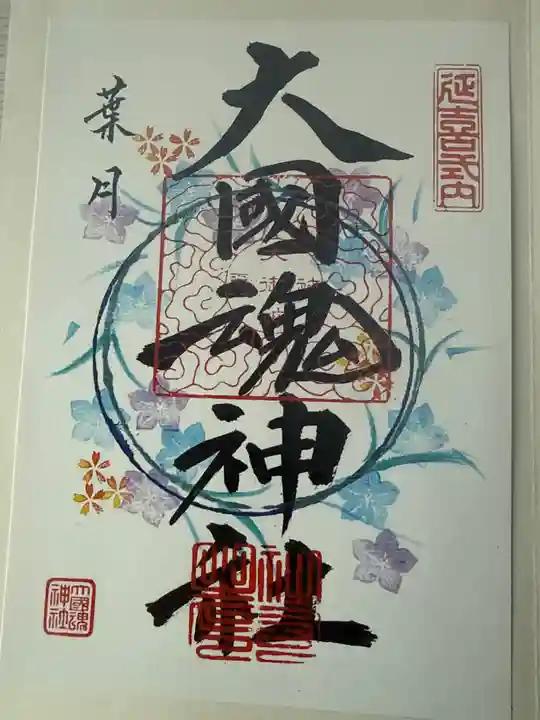 延喜式内
大國魂神社
葉月
大國魂神社